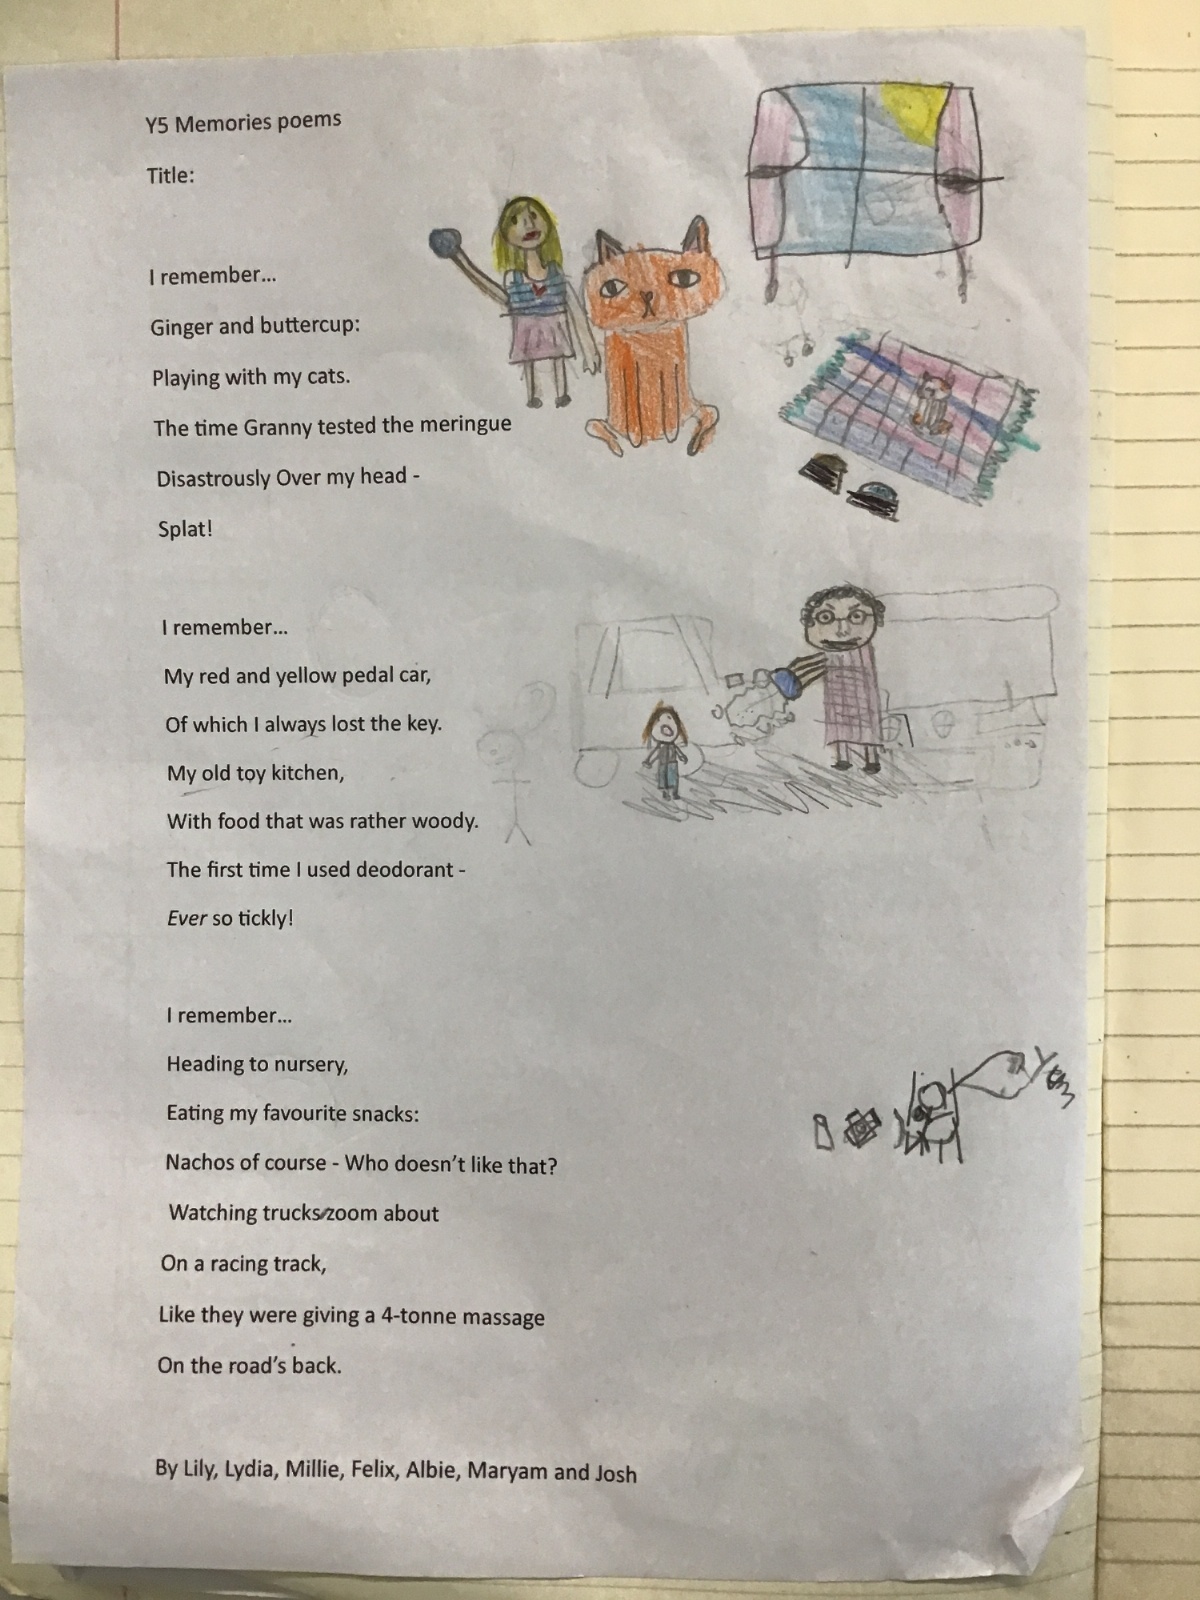 Y5 Memories poems
Title:
I remember...
Ginger and buttercup:
Playing with my cats.
The time Granny tested the meringue
Disastrously Over my head -
Splat!
I remember...
My red and yellow pedal car,
Of which I always lost the key.
My old toy kitchen,
With food that was rather woody.
The first time I used deodorant -
Ever so tickly!
I remember...
Heading to nursery,
Eating my favourite snacks:
Nachos of course - Who doesn't like that?
Watching trucks zoom about
On a racing track,
Like they were giving a 4-tonne massage
On the road's back.
By Lily, Lydia, Millie, Felix, Albie, Maryam and Josh